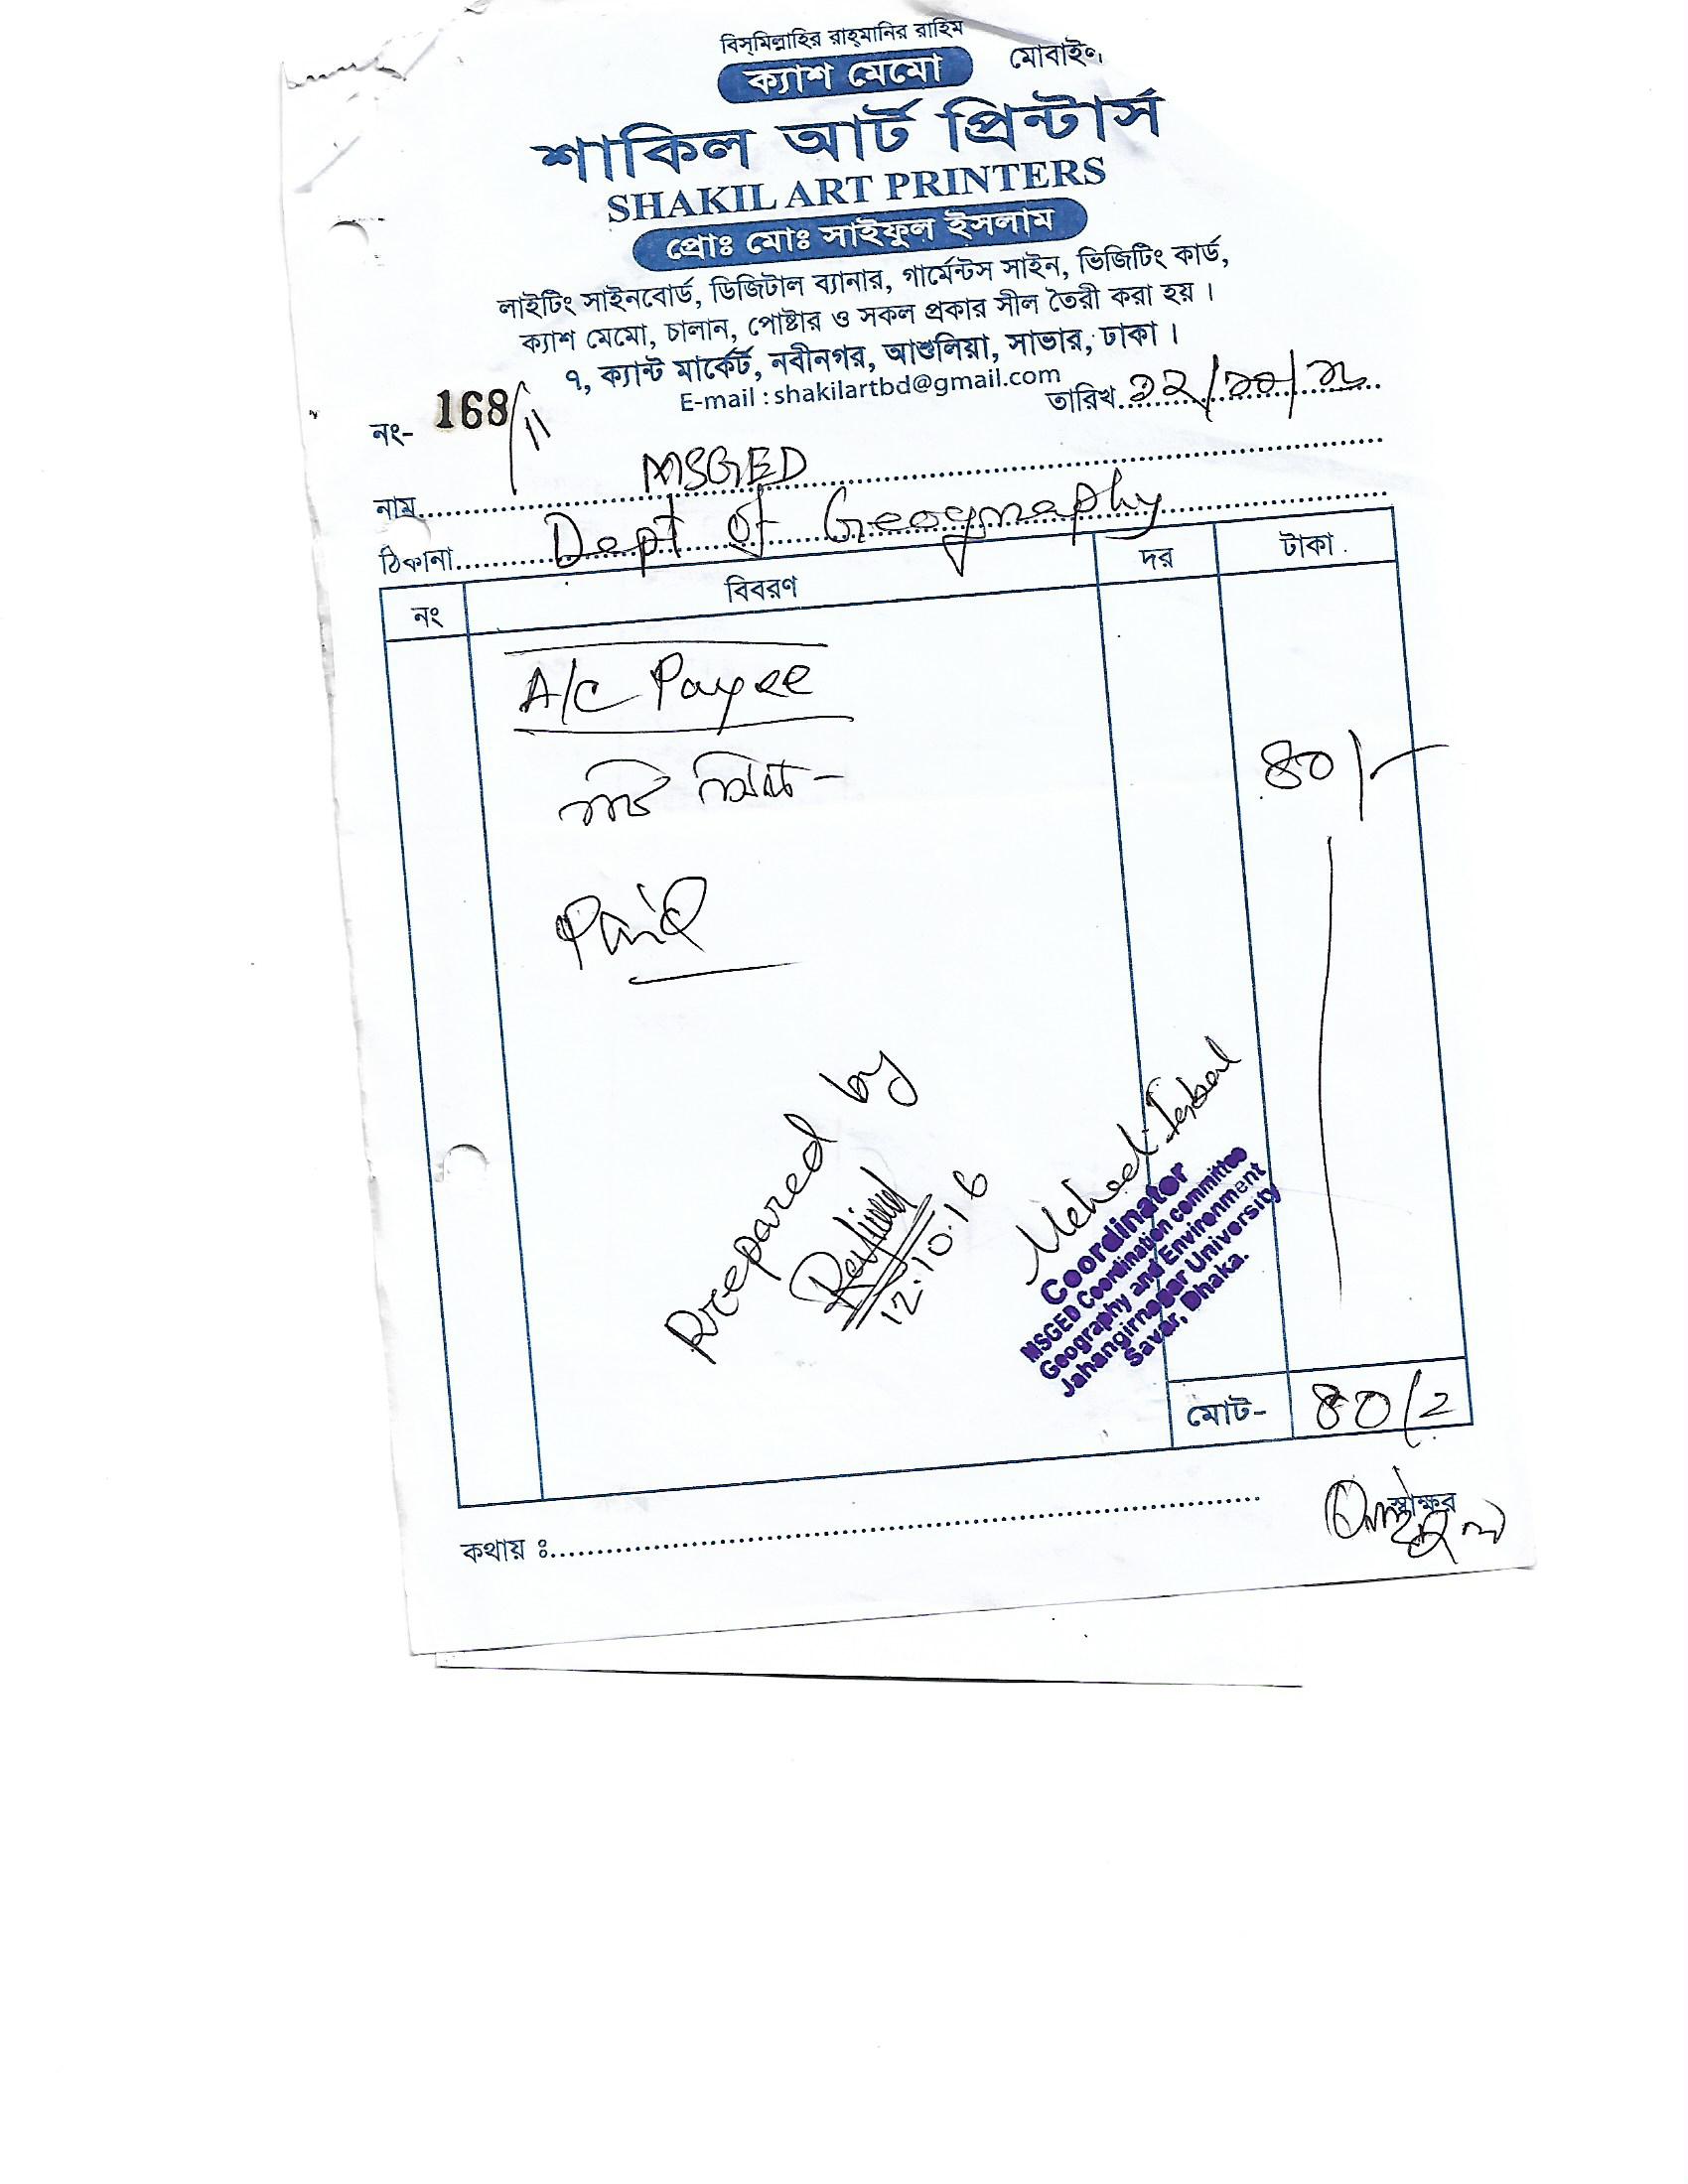 বিস্‌মিল্লাহির রাহ্‌মানির রাহিম
ক্যাশ মেমো
মোবাইল
শাকিল আর্ট প্রিন্টার্স
SHAKIL ART PRINTERS
প্রোঃ মোঃ সাইফুল ইসলাম
লাইটিং সাইনবোর্ড, ডিজিটাল ব্যানার, গার্মেন্টস সাইন, ভিজিটিং কার্ড,
ক্যাশ মেমো, চালান, পোষ্টার ও সকল প্রকার সীল তৈরী করা হয়।
৭, ক্যান্ট মার্কেট, নবীনগর, আশুলিয়া, সাভার, ঢাকা।
E-mail : shakilartbd@gmail.com
নং- 168/11
তারিখ 12/10/
নাম MSGED
ঠিকানা Dept of Geography
নং বিবরণ দর টাকা
A/C Payee
80/-
Paid
Prepared by
12.10.16
Mehedi Iqbal
Coordinator
MSGED Coordination committee
Geography and Environment
Jahangirnagar University
Savar, Dhaka.
মোট- 80/=
স্বাক্ষর
কথায় ঃ